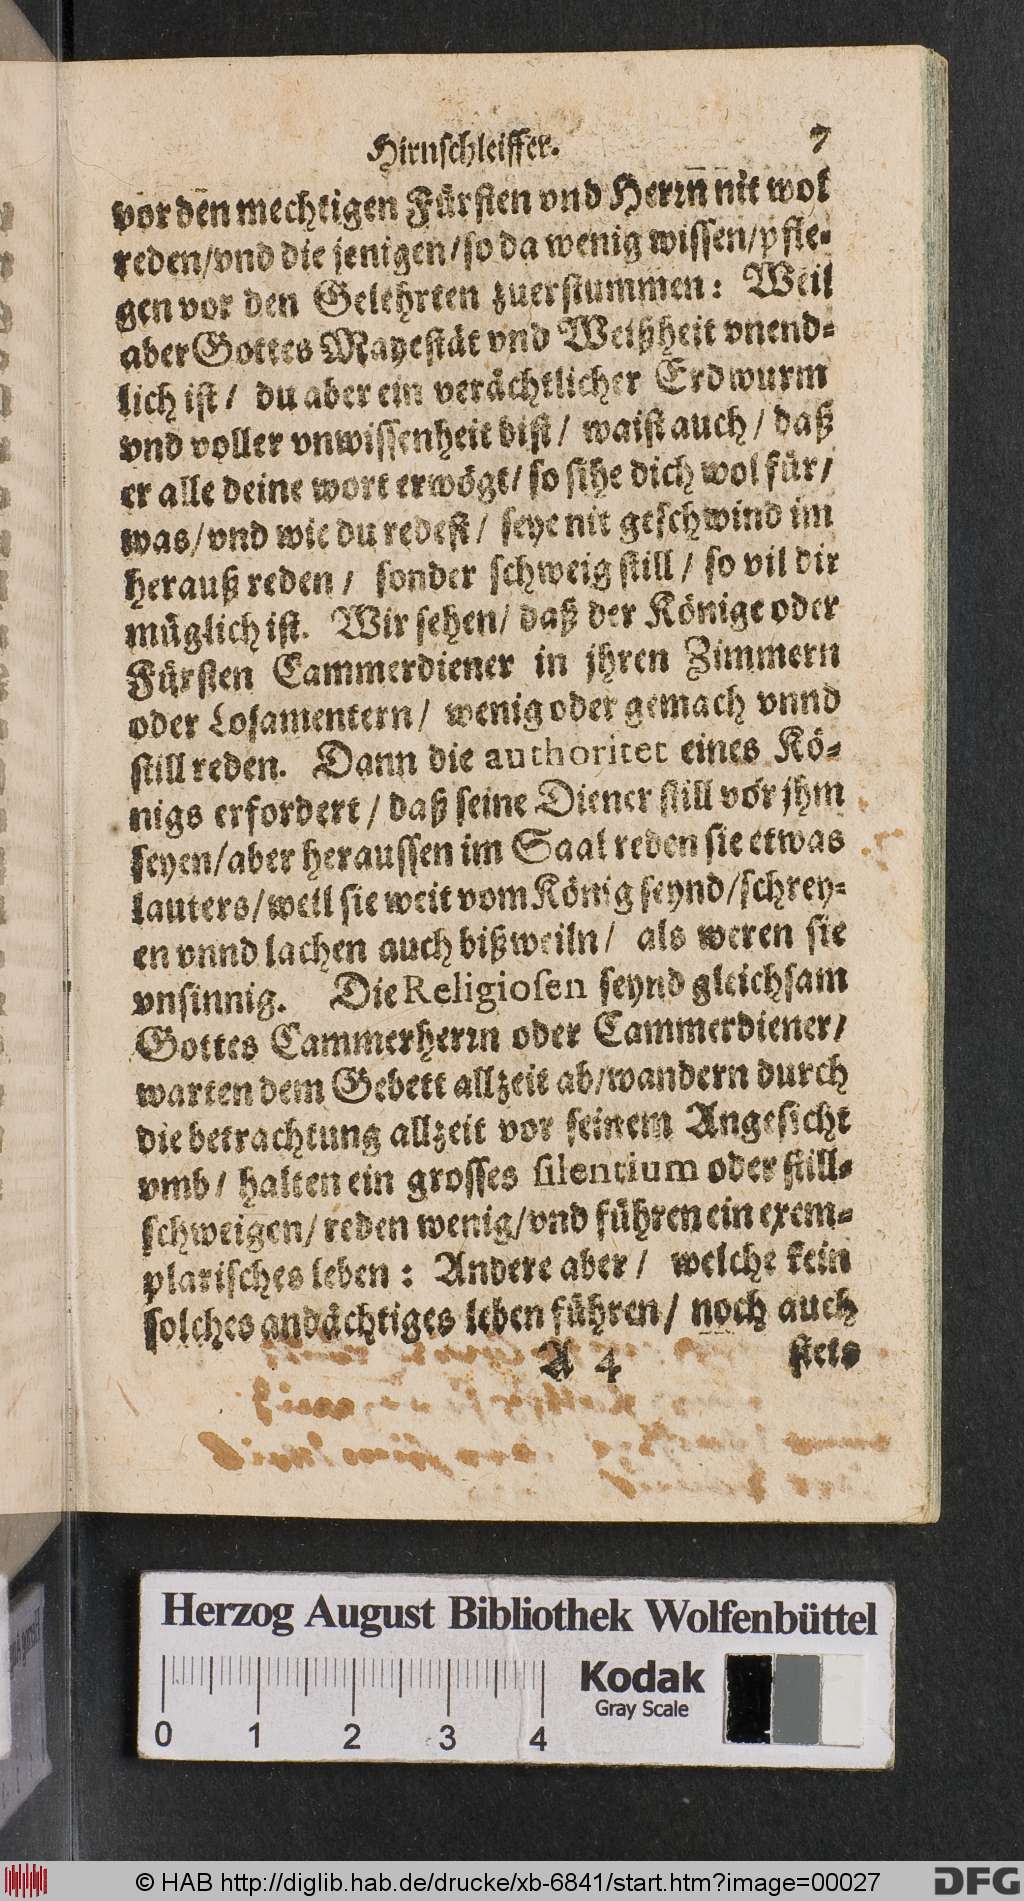 Hirnschleiffer. 7
vor den mechtigen Fürsten vnd Herrn nit wol
reden/vnd die jenigen/so da wenig wissen/pfle-
gen vor den Gelehrten zuerstummen: Weil
aber Gottes Mayestät vnd Weißheit vnend-
lich ist/ du aber ein verächtlicher Erdwurm
vnd voller vnwissenheit bist/ waist auch/ daß
er alle deine wort erwögt/ so sihe dich wol für/
was/vnd wie du redest/ seye nit geschwind im
herauß reden/ sonder schweig still/ so vil dir
müglich ist. Wir sehen/ daß der Könige oder
Fürsten Cammerdiener in jhren Zimmern
oder Losamentern/ wenig oder gemach vnnd
still reden. Dann die authoritet eines Kö-
nigs erfordert/ daß seine Diener still vor jhm
seyen/aber heraussen im Saal reden sie etwas
lauters/weil sie weit vom König seynd/schrey-
en vnnd lachen auch bißweiln/ als weren sie
vnsinnig. Die Religiosen seynd gleichsam
Gottes Cammerherrn oder Cammerdiener/
warten dem Gebett allzeit ab/wandern durch
die betrachtung allzeit vor seinem Angesicht
vmb/ halten ein grosses silentium oder still-
schweigen/ reden wenig/vnd führen ein exem-
plarisches leben: Andere aber/ welche kein
solches andächtiges leben führen/ noch auch
A 4 stets
Herzog August Bibliothek Wolfenbüttel
Kodak
Gray Scale
0 1 2 3 4
© HAB http://diglib.hab.de/drucke/xb-6841/start.htm?image=00027
DFG